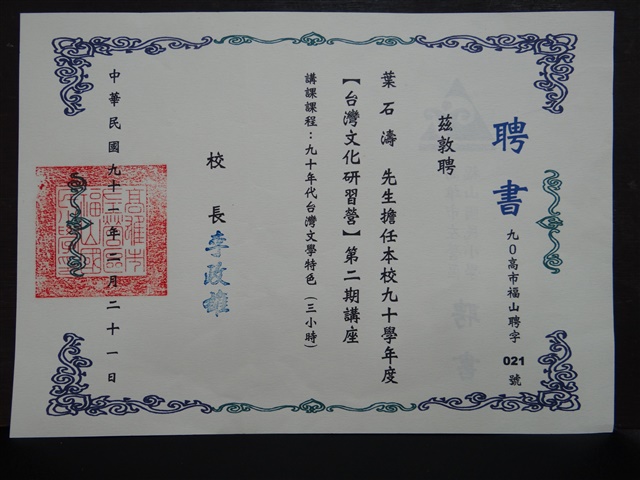 聘書
九0高市福山聘字021號
茲敦聘
葉石濤 先生擔任本校九十學年度
【台灣文化研習營】第二期講座
講課課程：九十年代台灣文學特色（三小時）
校長李政雄
中華民國九十一年二月二十一日